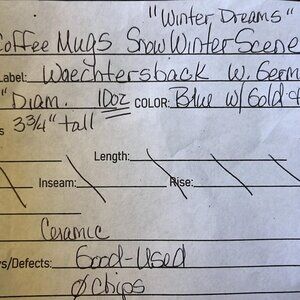 "Winter Dreams"
Coffee Mugs Snow Winter Scene
Label: Waechtersback W. Germ
" Diam. 10oz COLOR: Blue w/Gold
3 3/4" tall
Length:
Inseam: Rise:
Ceramic
ws/Defects: Good-Used
Ø Chips